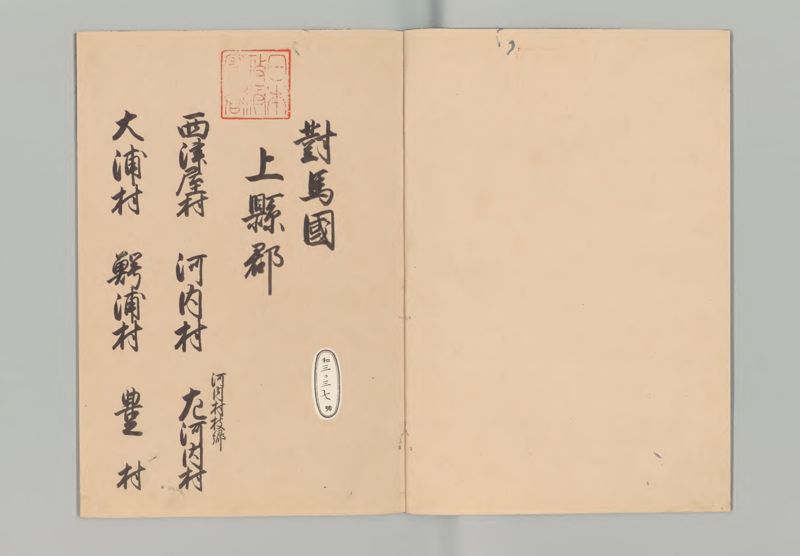 對馬國
上縣郡
西津屋村 河内村 河内村枝郷 大河内村
大浦村 鰐浦村 豊村
和三〇三七號